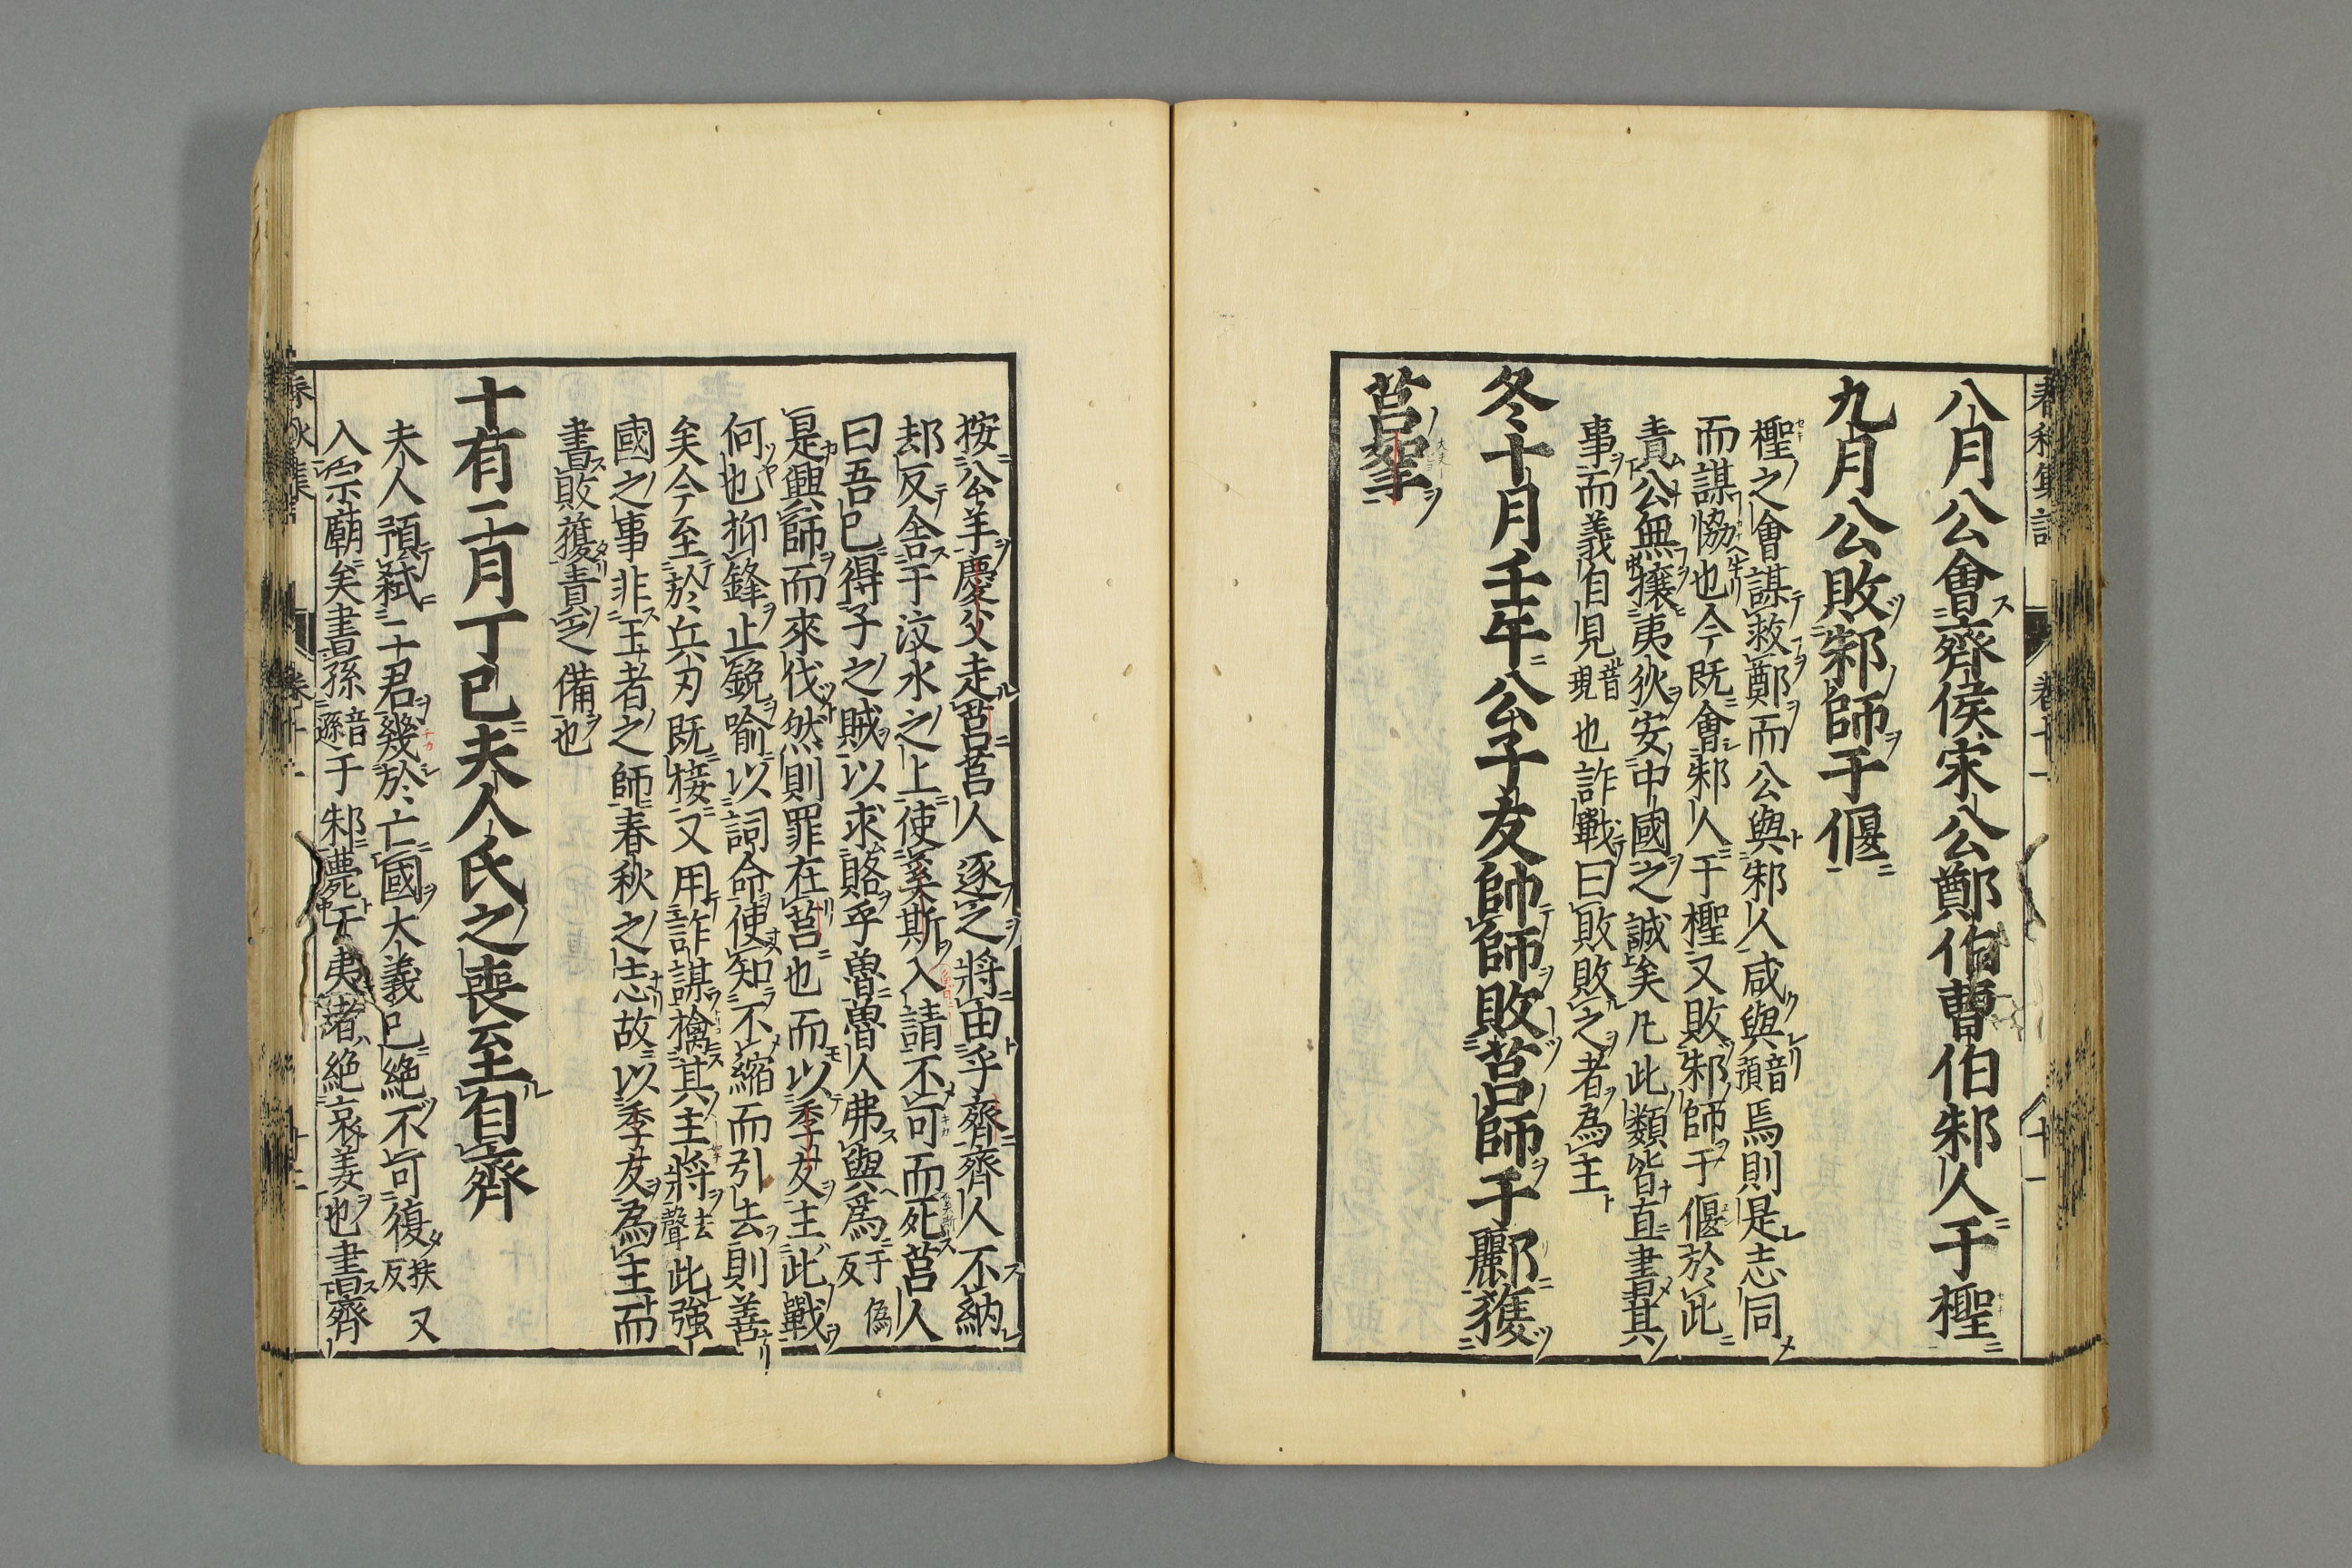 八月公會齊侯宋公鄭伯曹伯邾人于檉
九月公敗邾師于偃
檉之會謀救鄭而公與邾人咸與音預焉則是志同
而謀恊也今既會邾人于檉又敗邾師于偃於此
責公無攘夷狄安中國之誠矣凡此類皆直書其
事而義自見音現也詐戰曰敗敗之者為主
冬十月壬午公子友帥師敗莒師于酈獲
莒挐
按公羊慶父走莒莒人逐之將由乎齊齊人不納
却反舍于汶水之上使奚斯入請不可而死莒人
曰吾已得子之賊以求賂乎魯魯人弗與爲于偽反
是興師而來伐然則罪在莒也而以季友主此戰
何也抑鋒止銳喻以詞命使知不縮而引去則善
矣今至於兵刃既接又用詐謀擒其主將去聲此強
國之事非王者之師春秋之志故以季友為主而
書敗獲責之備也
十有二月丁巳夫人氏之喪至自齊
夫人預弒二君幾於亡國大義已絕不可復扶又反
入宗廟矣書孫音遜于邾薨于夷者絕哀姜也書齊